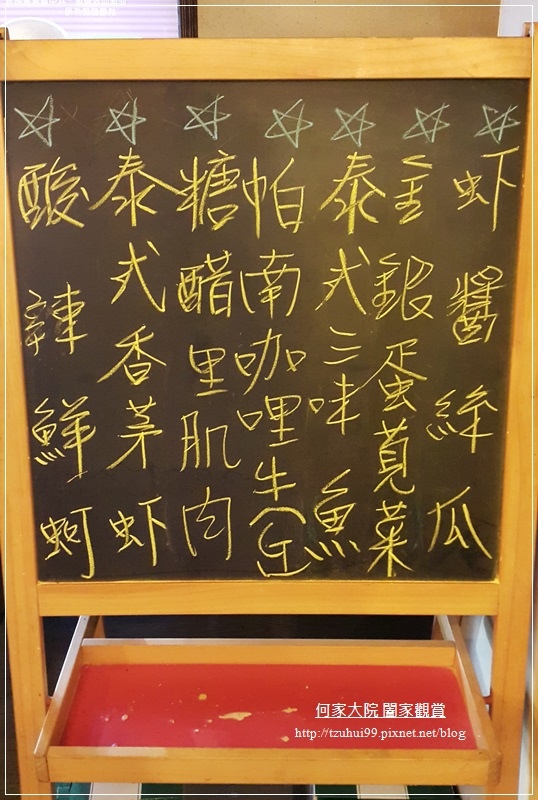 虾醬絲瓜
金銀蛋莧菜
泰式三味魚
帕南咖哩牛
糖醋里肌肉
泰式香茅虾
酸辣鮮蚵
何家大院 闔家觀賞
http://tzuhui99.pixnet.net/blog